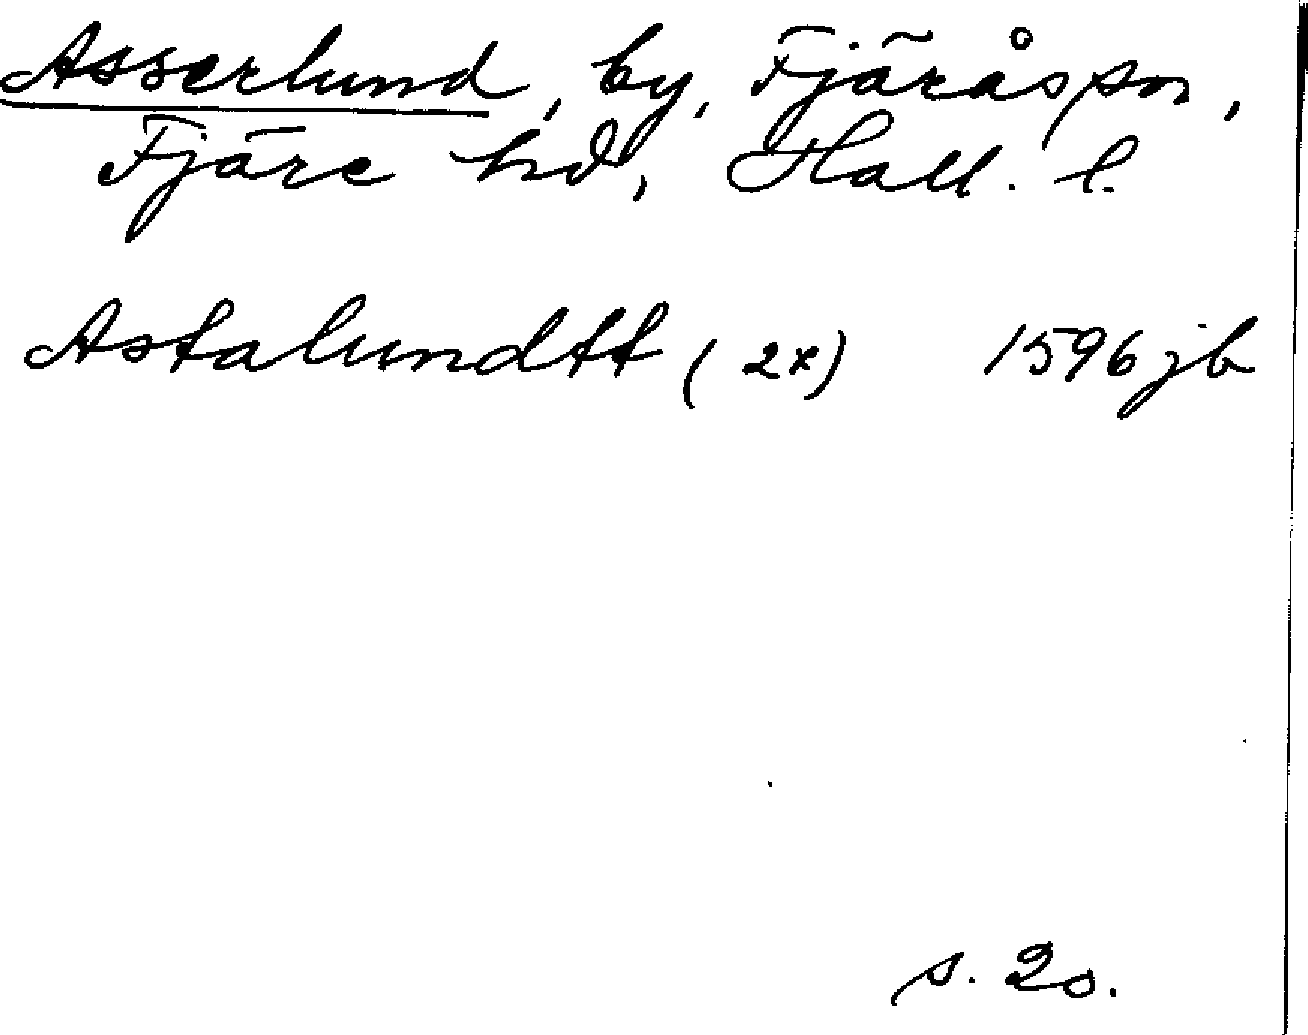 Asserlund, by, Fjärås sn,
Fjäre hd, Hall. l.
Astalundtt (2x) 1596 jb
s. 20.